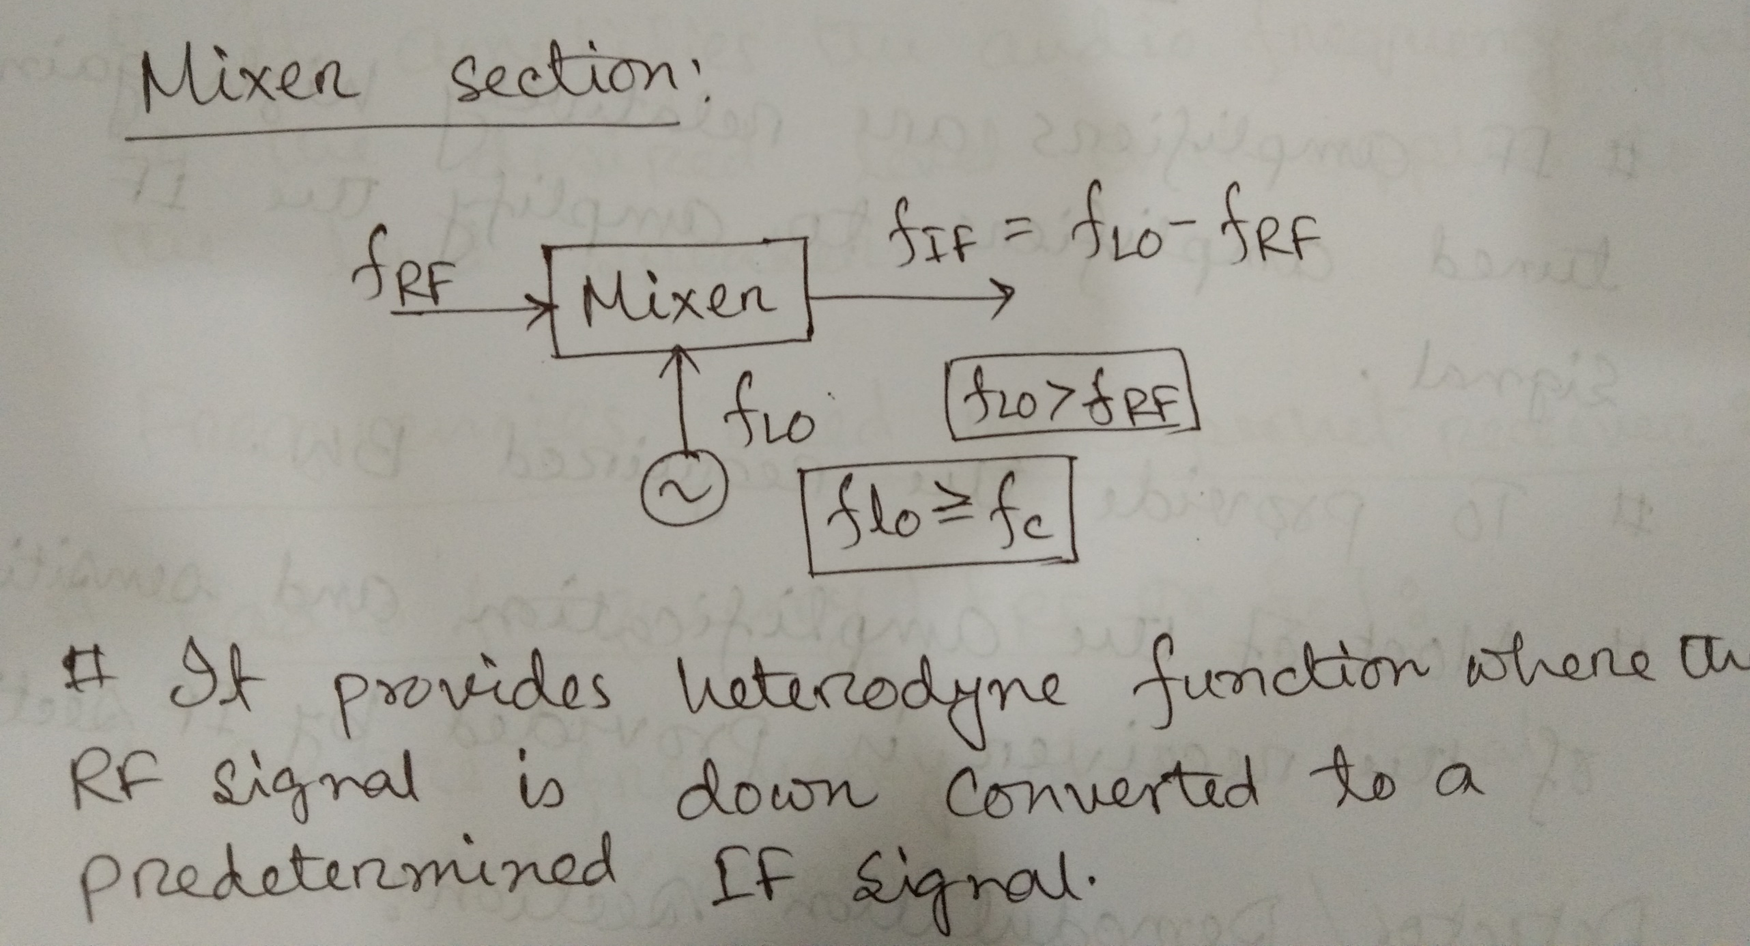 Mixer section:
f_RF
Mixer
f_IF = f_LO - f_RF
f_LO
f_LO > f_RF
~
f_lo ≥ f_c
# It provides heterodyne function where
RF signal is down converted to a
predetermined IF signal.